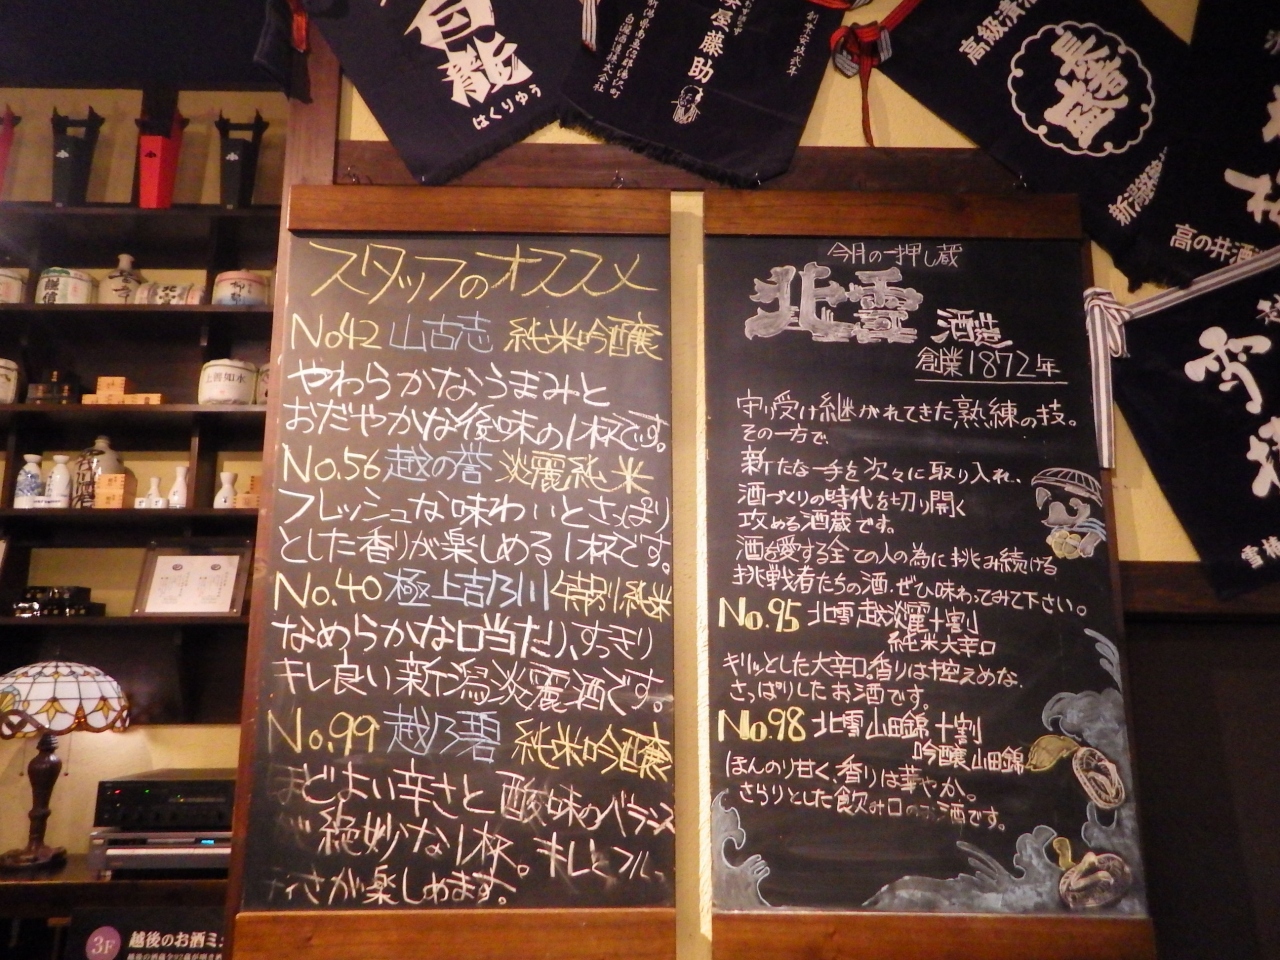 白龍
はくりゅう
屋藤助
創業安政弐年
白瀧酒造株式会社
高級清酒
長者盛
新潟銘
高の井酒
謙信
上善如水
スタッフのオススメ
No.42 山古志 純米吟醸
やわらかなうまみと
おだやかな後味の1杯です。
No.56 越の誉 淡麗純米
フレッシュな味わいとさっぱり
とした香りが楽しめる1杯です。
No.40 極上吉乃川 特別純米
なめらかな口当たり、すっきり
キレ良い新潟淡麗酒です。
No.99 越乃碧 純米吟醸
ほどよい辛さと酸味のバランス
絶妙な1杯。キレとフル
ィさが楽しめます。
今月の一押し蔵
北雪 酒造
創業1872年
守り受け継がれてきた熟練の技。
その一方で、
新たな一手を次々に取り入れ、
酒づくりの時代を切り開く
攻める酒蔵です。
酒を愛する全ての人の為に挑み続ける
挑戦者たちの酒、ぜひ味わってみて下さい。
No.95 北雪 越淡麗十割
純米大辛口
キリッとした大辛口。香りは控えめな、
さっぱりしたお酒です。
No.98 北雪 山田錦十割
吟醸山田錦
ほんのり甘く、香りは華やか。
さらりとした飲み口のお酒です。
3F
越後のお酒ミュ